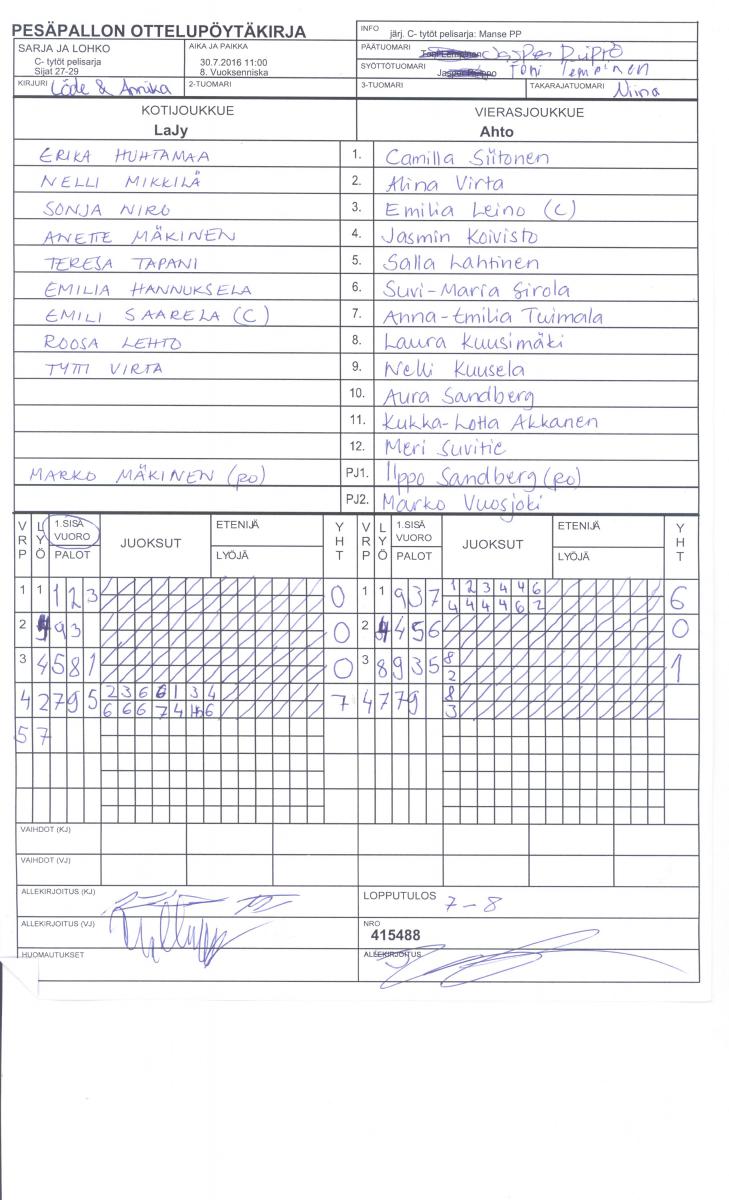 PESÄPALLON OTTELUPÖYTÄKIRJA
INFO järj. C- tytöt pelisarja: Manse PP
SARJA JA LOHKO
C- tytöt pelisarja
Sijat 27-29
AIKA JA PAIKKA
30.7.2016 11:00
8. Vuoksenniska
PÄÄTUOMARI Jasper
SYÖTTÖTUOMARI Toni
KIRJURI Löde & Annika
2-TUOMARI
3-TUOMARI
TAKARAJATUOMARI Niina
KOTIJOUKKUE
LaJy
VIERASJOUKKUE
Ahto
ERIKA HUHTAMAA 1. Camilla Siitonen
NELLI MIKKILÄ 2. Alina Virta
SONJA NIRO 3. Emilia Leino (C)
ANETTE MÄKINEN 4. Jasmin Koivisto
TERESA TAPANI 5. Salla Lahtinen
EMILIA HANNUKSELA 6. Suvi-Maria Sirola
EMILI SAARELA (C) 7. Anna-Emilia Tuimala
ROOSA LEHTO 8. Laura Kuusimäki
TYTTI VIRTA 9. Nelli Kuusela
10. Aura Sandberg
11. Kukka-Lotta Akkanen
12. Meri Suvitie
MARKO MÄKINEN (PO) PJ1. Ilppo Sandberg (PO)
PJ2. Marko Vuosjoki
VRP LYÖ 1.SISÄ VUORO PALOT JUOKSUT ETENIJÄ LYÖJÄ YHT VRP LYÖ 1.SISÄ VUORO PALOT JUOKSUT ETENIJÄ LYÖJÄ YHT
1 1 1 2 3 0 1 1 9 3 7 1 2 3 4 4 6 6
4 4 4 4 6 2
2 9 3 0 2 4 5 6 0
3 4 5 8 1 0 3 8 9 3 5 8 1
2
4 2 7 9 5 2 3 6 6 1 3 4 7 4 7 7 9 8
6 6 6 7 4 6 3
5 7
VAIHDOT (KJ)
VAIHDOT (VJ)
ALLEKIRJOITUS (KJ)
LOPPUTULOS 7-8
ALLEKIRJOITUS (VJ)
NRO
415488
HUOMAUTUKSET
ALLEKIRJOITUS